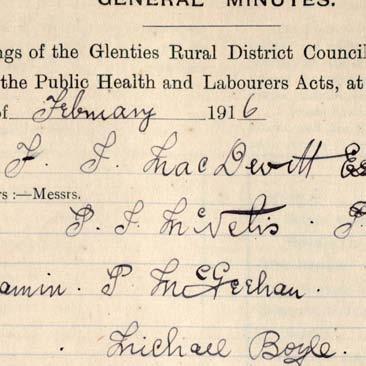 GENERAL MINUTES.
ngs of the Glenties Rural District Council
the Public Health and Labourers Acts, at
of February 1916
J. S. MacDevitt Es
rs :—Messrs.
P. S. McNelis . P
amin . P McGeehan .
. Michael Boyle .